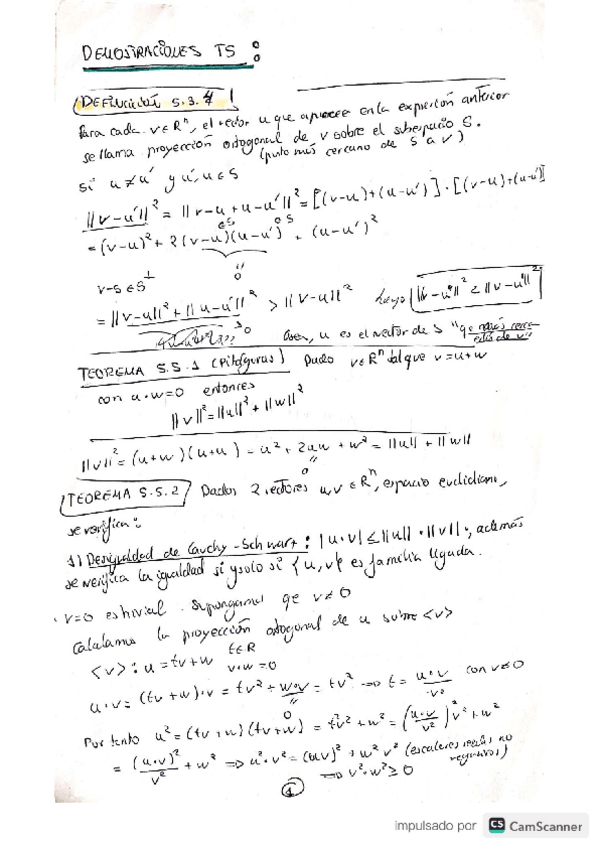 DEMOSTRACIONES T5 :
DEFINICIÓN 5.3.4
Para cada v∈Rⁿ, el vector u que aparece en la expresión anterior
se llama proyección ortogonal de v sobre el subespacio S.
(punto más cercano de S a v)
Si u ≠ u' y u', u ∈ S
||v-u'||² = ||v-u+u-u'||² = [(v-u)+(u-u')]·[(v-u)+(u-u')]
= (v-u)² + 2(v-u)(u-u') + (u-u')²
∈S ∈S
v-s ∈ S⊥ 0
= ||v-u||² + ||u-u'||² > ||v-u||² luego ||v-u||² < ||v-u'||²
≥0 u es el vector de S "que más cerca está de v"
TEOREMA 5.5.1 (Pitágoras) Dado v∈Rⁿ tal que v=u+w
con u·w=0 entonces
||v||² = ||u||² + ||w||²
||v||² = (u+w)(u+w) = u² + 2uw + w² = ||u|| + ||w||
0
TEOREMA 5.5.2 Dados 2 vectores u,v ∈ Rⁿ, espacio euclidiano,
se verifica:
1) Desigualdad de Cauchy-Schwart: |u·v| ≤ ||u||·||v||; además
se verifica la igualdad si y solo si {u,v} es familia ligada.
· v=0 es trivial. Supongamos que v≠0
Calculamos la proyección ortogonal de u sobre <v>
<v>: u = tv+w t∈R v·w=0
u·v = (tv+w)·v = tv² + w·v = tv² => t = u·v/v² con v≠0
0
Por tanto u² = (tv+w)(tv+w) = t²v² + w² = (u·v/v²)² v² + w²
= (u·v)²/v² + w² => u²·v² = (uv)² + w²v² (escalares reales no negativos)
=> v²·w² ≥ 0
1
impulsado por CS CamScanner